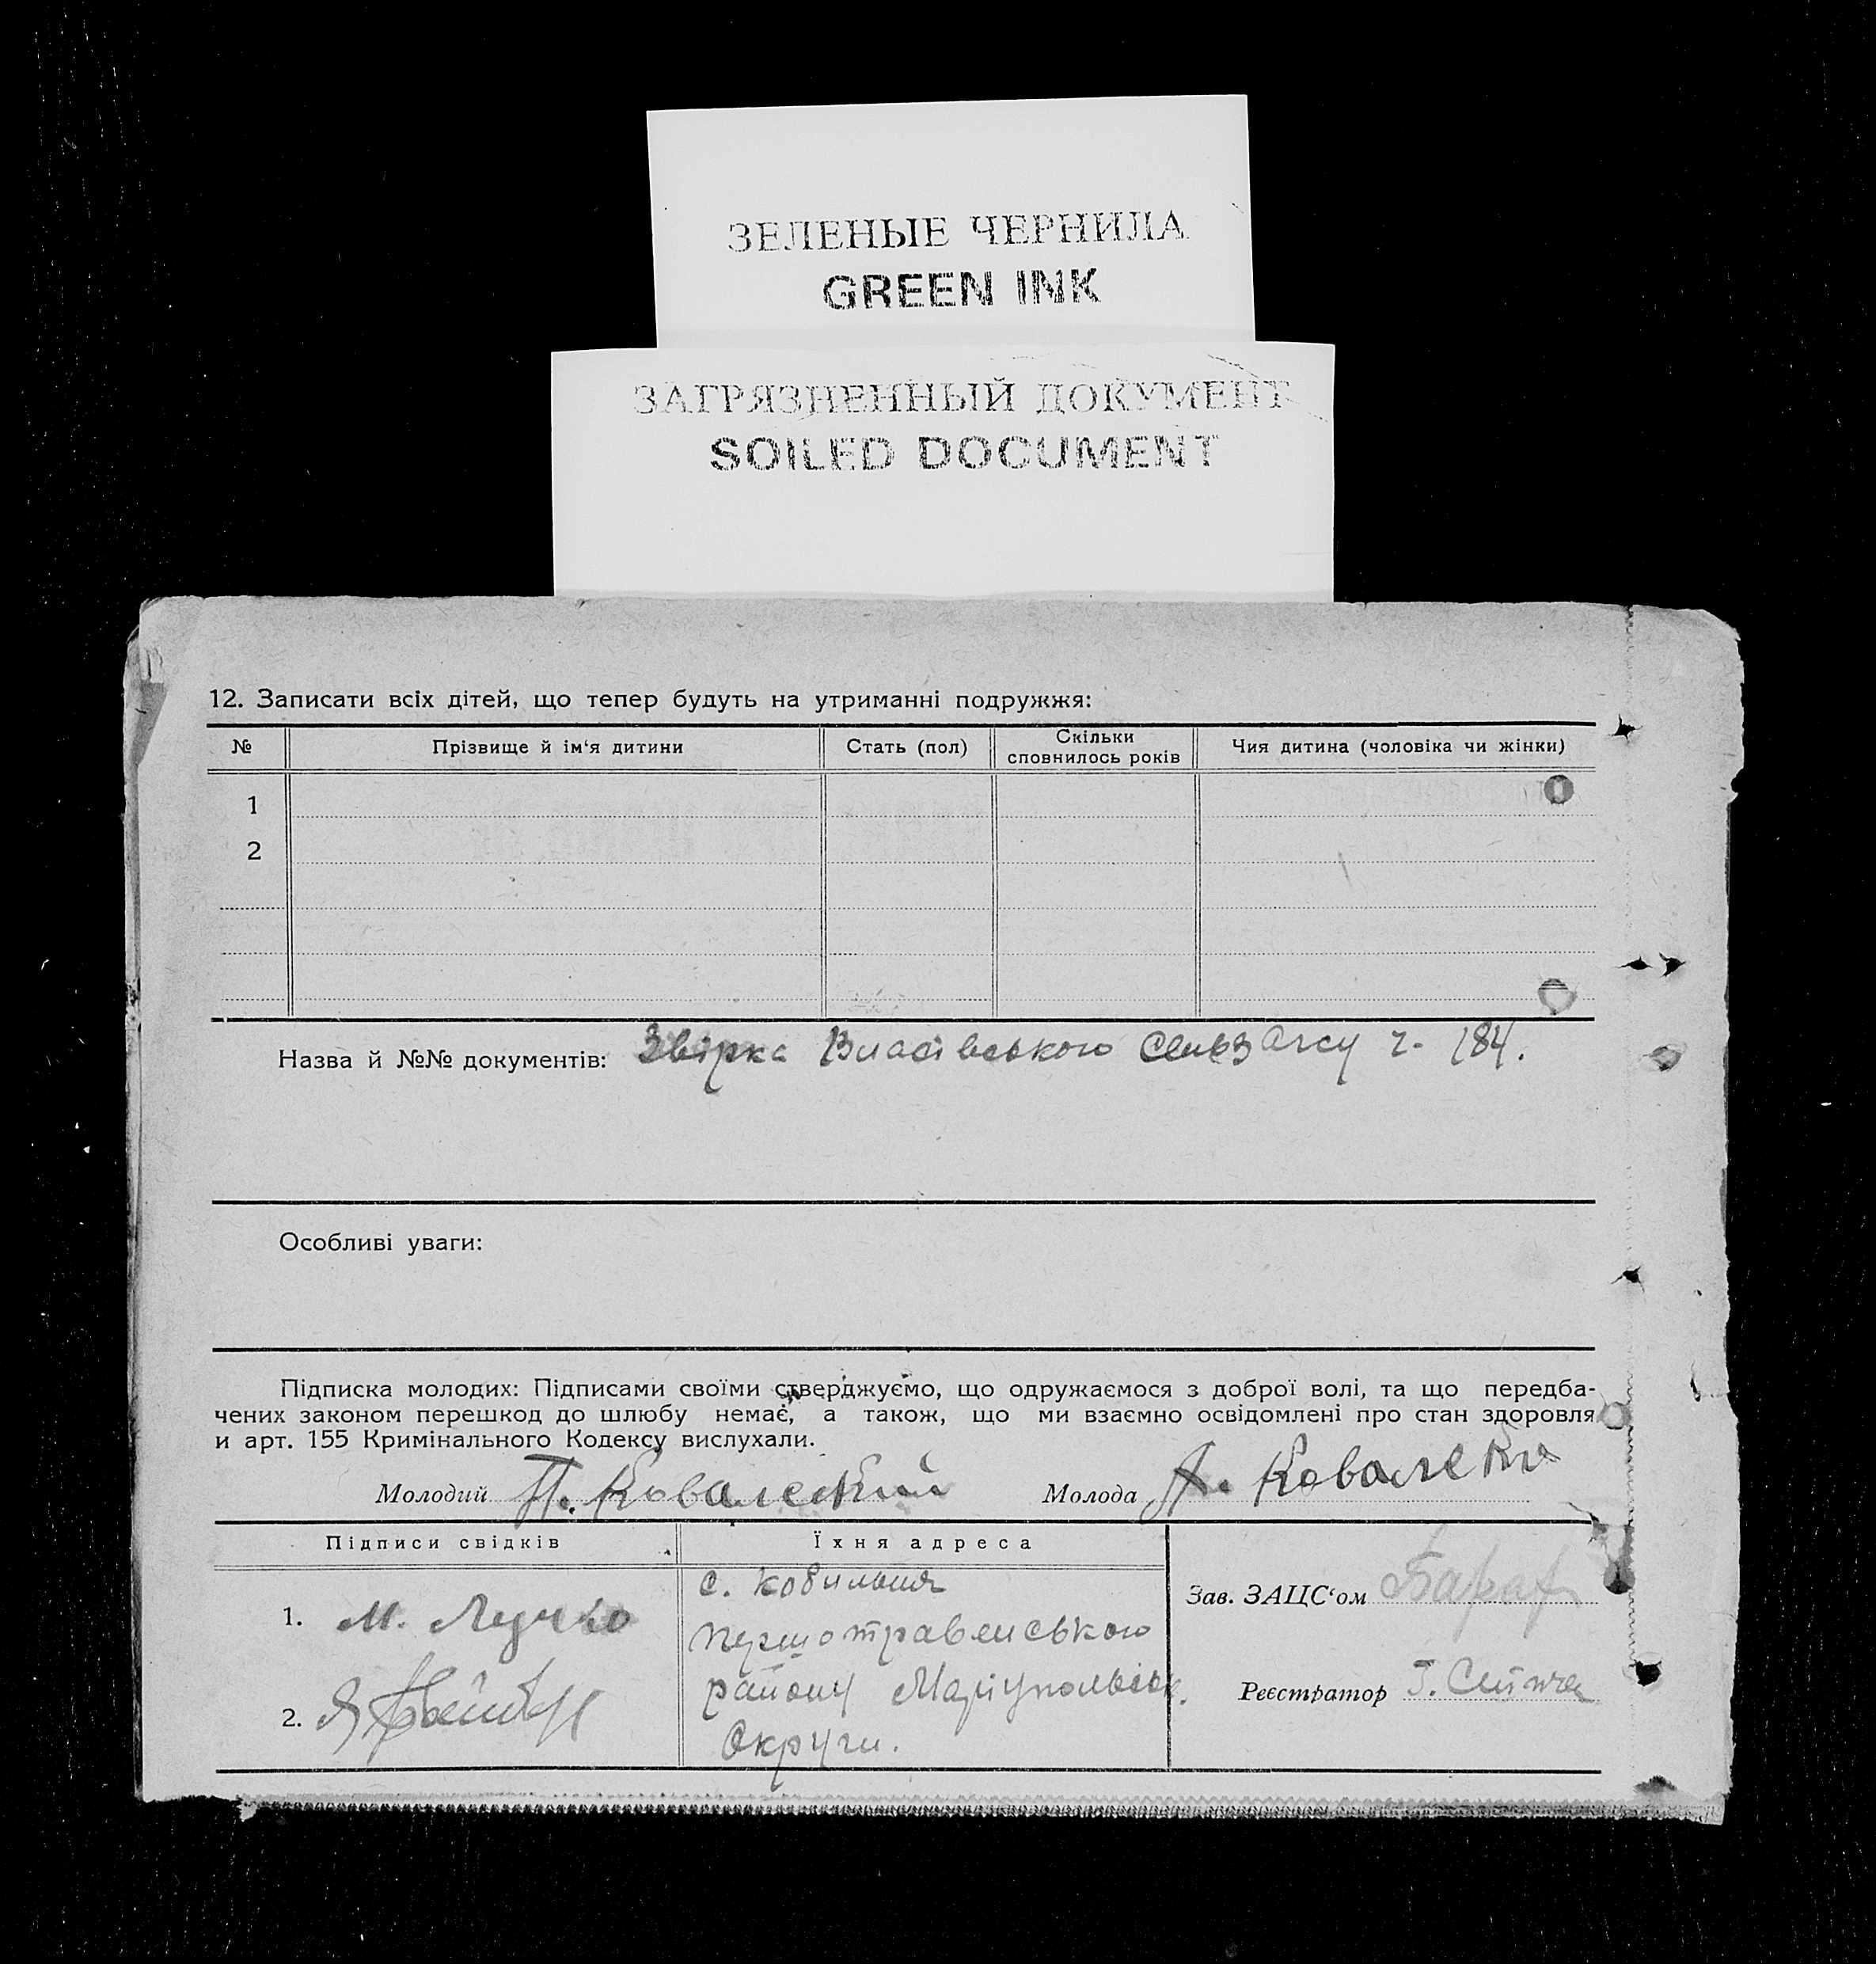 ЗЕЛЕНЫЕ ЧЕРНИЛА
GREEN INK
ЗАГРЯЗНЕННЫЙ ДОКУМЕНТ
SOILED DOCUMENT
12. Записати всіх дітей, що тепер будуть на утриманні подружжя:
№ Прізвище й ім‘я дитини Стать (пол) Скільки сповнилось років Чия дитина (чоловіка чи жінки)
1
2
Назва й №№ документів: Звірка ч. 184.
Особливі уваги:
Підписка молодих: Підписами своїми стверджуємо, що одружаємося з доброї волі, та що передба-
чених законом перешкод до шлюбу немає, а також, що ми взаємно освідомлені про стан здоровля
и арт. 155 Кримінального Кодексу вислухали.
Молодий П. Ковалевкий Молода А. Ковалевка
Підписи свідків Їхня адреса
с. Кобильня
1. М.
Першотравенського
району Маріупольськ.
2.
Округи.
Зав. ЗАЦС‘ом
Реєстратор